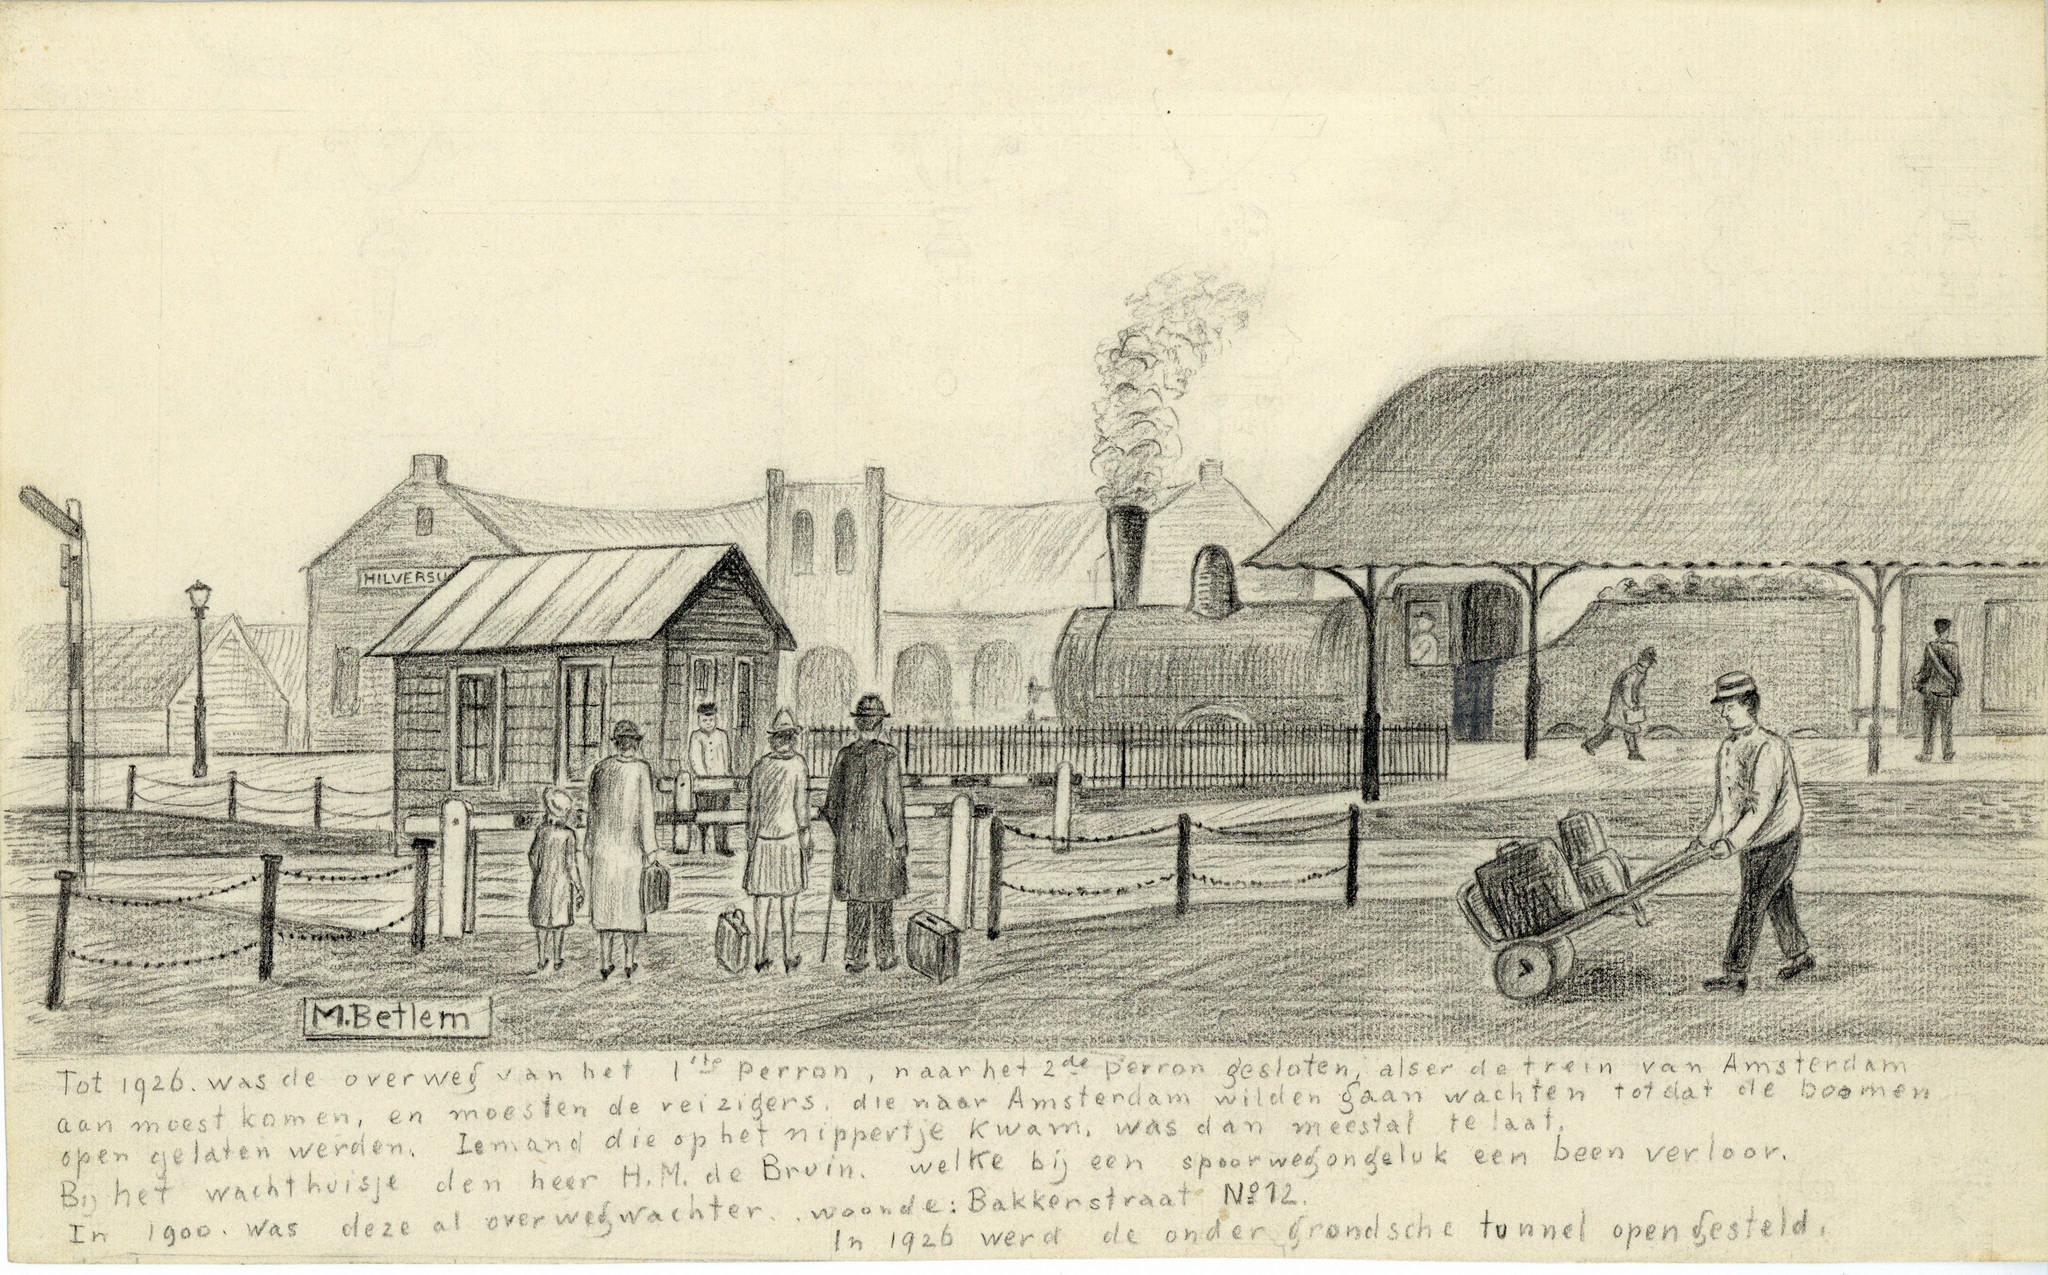 HILVERSU
M. Betlem
Tot 1926. was de overweg van het 1ste perron, naar het 2de perron gesloten, alser de trein van Amsterdam
aan moest komen, en moesten de reizigers. die naar Amsterdam wilden gaan wachten totdat de boomen
open gelaten werden. Iemand die op het nippertje kwam. was dan meestal te laat.
Bij het wachthuisje den heer H.M. de Bruin. welke bij een spoorwegongeluk een been verloor.
In 1900. was deze al overwegwachter. .woonde: Bakkerstraat No 12.
In 1926 werd de onder grondsche tunnel open gesteld.